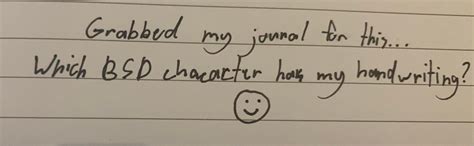 Grabbed my jounal for this...
Which BSD chacactr has my handwriting?